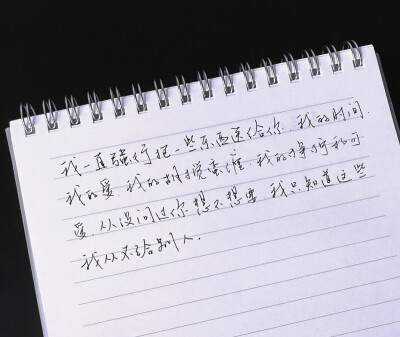 我一直强行把一些东西送给你.我的时间.
我的爱.我的胡搅蛮缠.我的狰狞和可
爱.从没问过你想不想要.我只知道这些
我从不给别人.